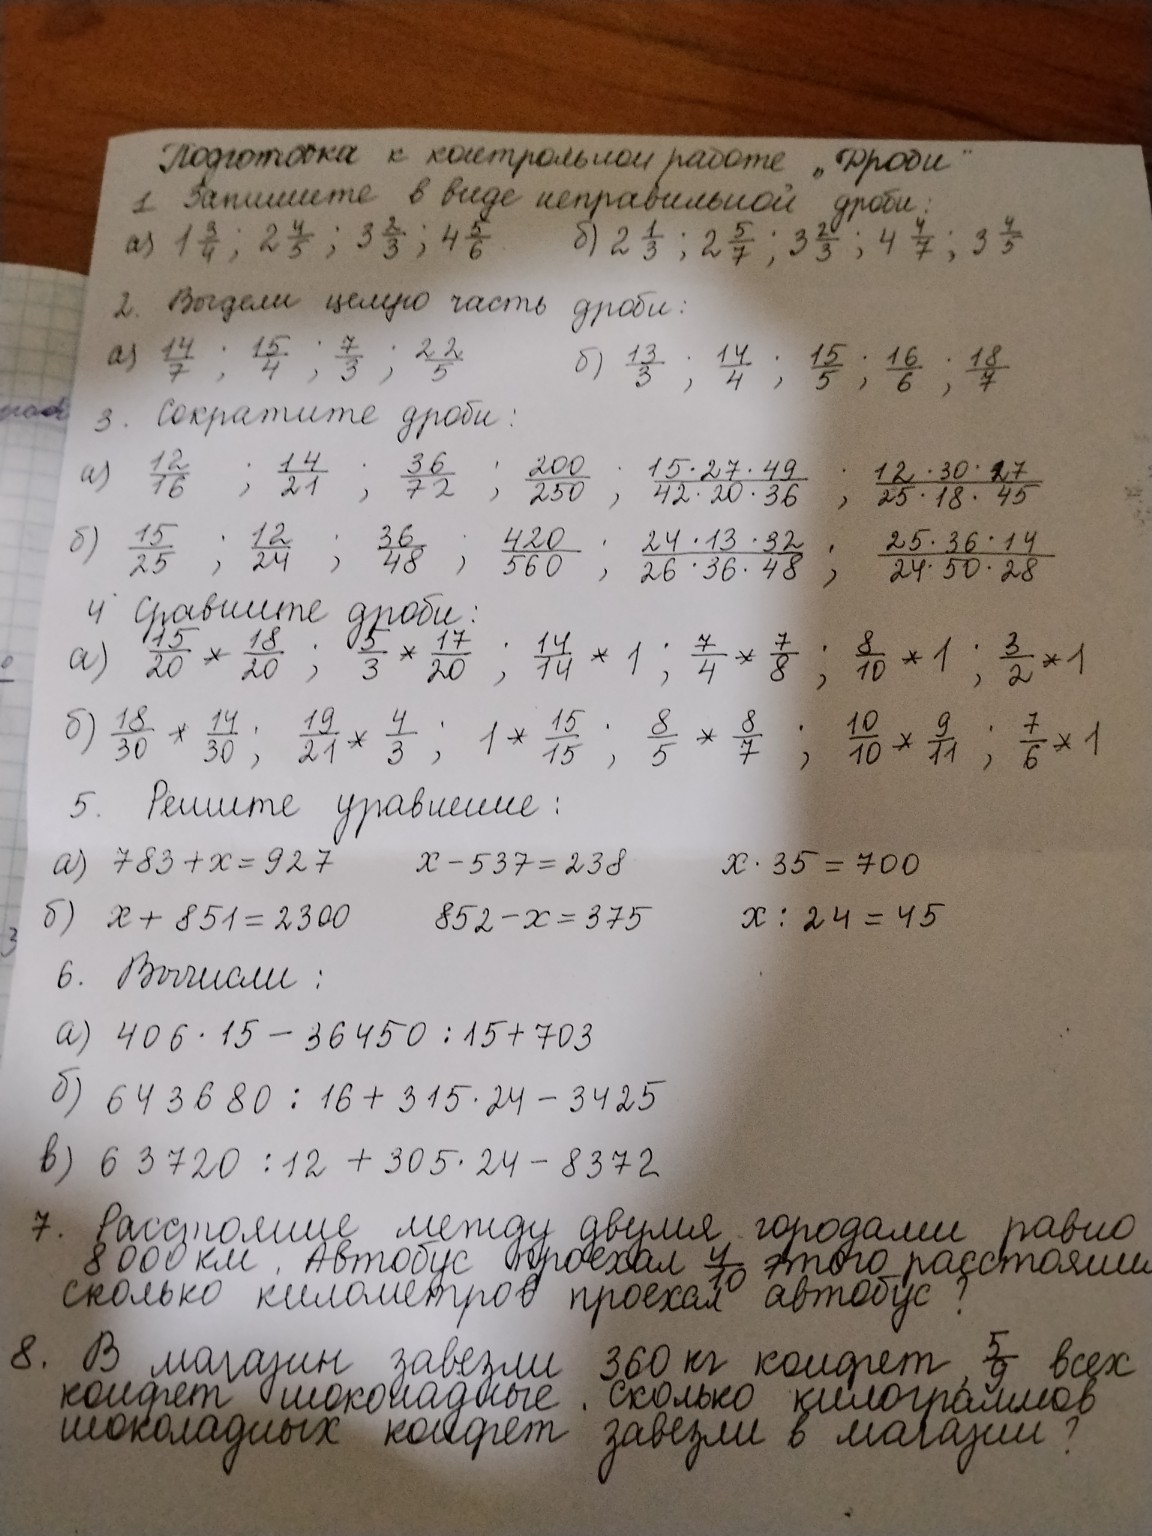 Подготовка к контрольной работе „Дроби"
1 Запишите в виде неправильной дроби:
а) 1 3/4 ; 2 4/5 ; 3 2/3 ; 4 5/6 б) 2 1/3 ; 2 5/7 ; 3 2/3 ; 4 4/7 ; 3 4/5
2. Выдели целую часть дроби:
а) 14/7 ; 15/4 ; 7/3 ; 22/5 б) 13/3 ; 14/4 ; 15/5 ; 16/6 ; 18/7
3. Сократите дроби:
а) 12/16 ; 14/21 ; 36/72 ; 200/250 ; 15·27·49/42·20·36 ; 12·30·27/25·18·45
б) 15/25 ; 12/24 ; 36/48 ; 420/560 ; 24·13·32/26·36·48 ; 25·36·14/24·50·28
4 Сравните дроби:
а) 15/20 * 18/20 ; 5/3 * 17/20 ; 14/14 * 1 ; 7/4 * 7/8 ; 8/10 * 1 ; 3/2 * 1
б) 18/30 * 14/30 ; 19/21 * 4/3 ; 1 * 15/15 ; 8/5 * 8/7 ; 10/10 * 9/11 ; 7/6 * 1
5. Решите уравнение:
а) 783+x=927 x-537=238 x·35=700
б) x+851=2300 852-x=375 x:24=45
6. Вычисли:
а) 406·15-36450:15+703
б) 643680:16+315·24-3425
в) 63720:12+305·24-8372
7. Расстояние между двумя городами равно
8000км. Автобус проехал 4/10 этого расстояния
сколько километров проехал автобус?
8. В магазин завезли 360 кг конфет, 5/9 всех
конфет шоколадные. сколько килограммов
шоколадных конфет завезли в магазин?